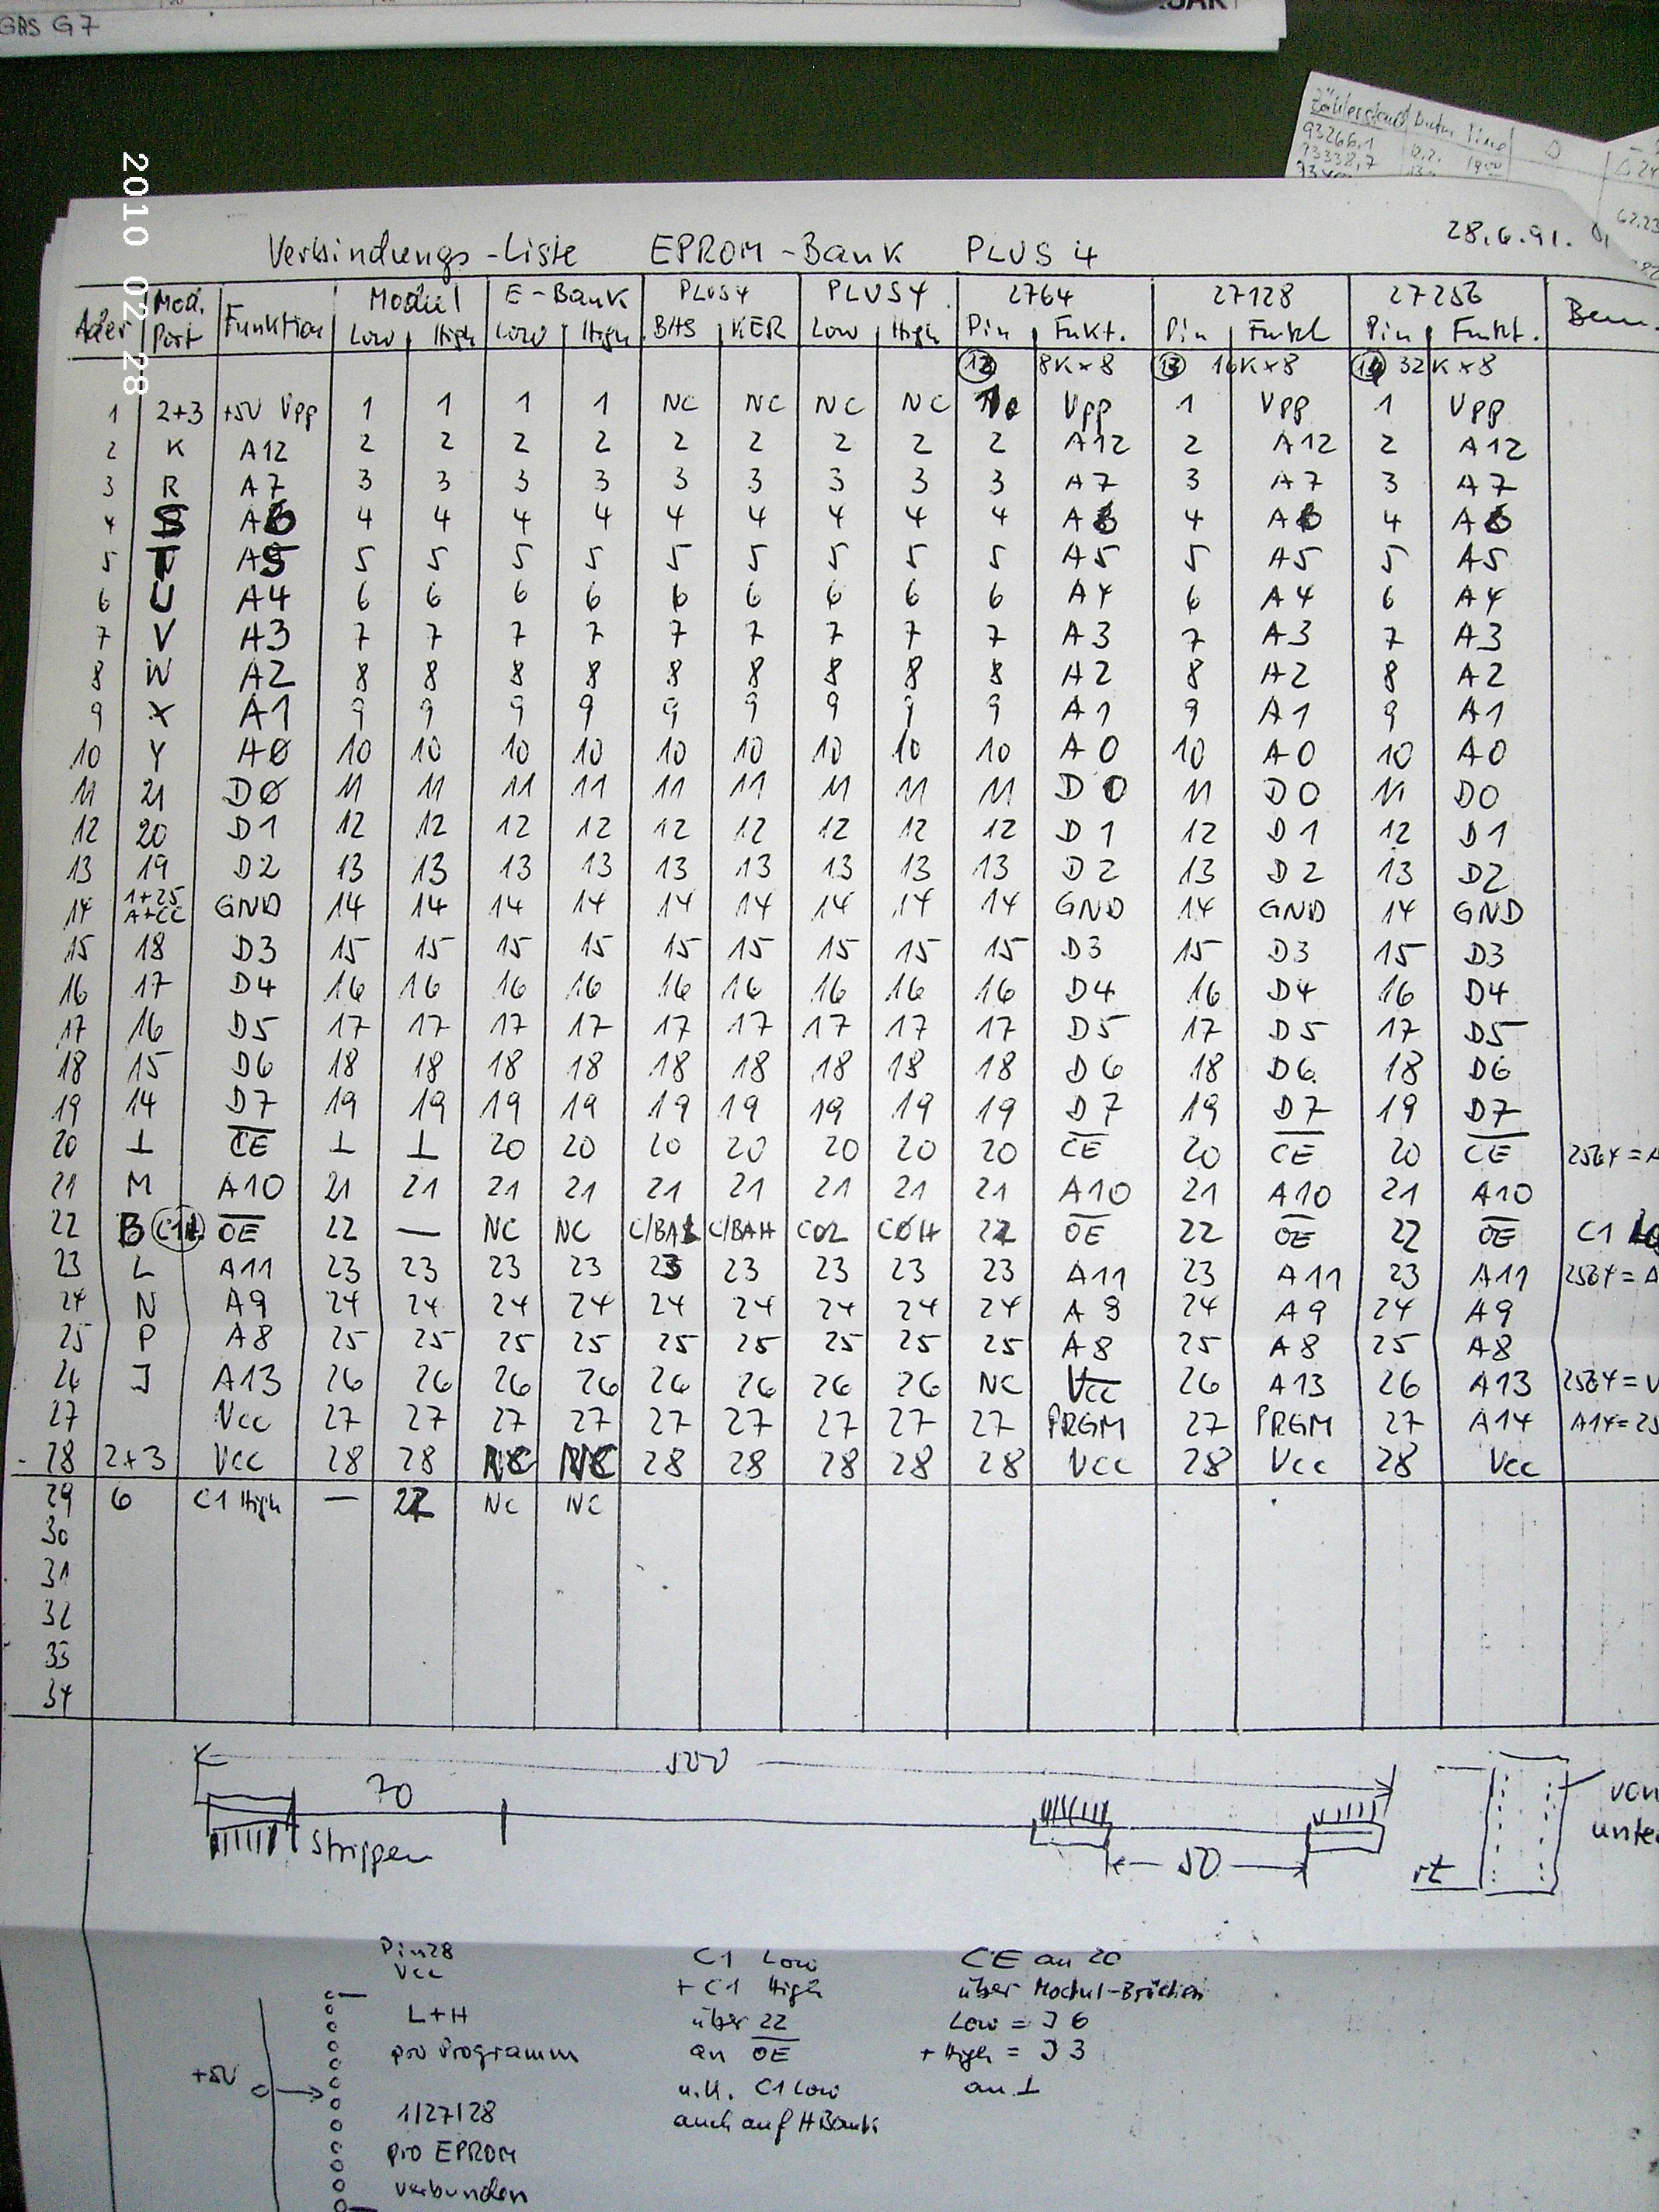 GAS G7
Zählerstand Datum Time
93266,1
93338,7
2010 02 28
28.6.91.
Verbindungs-Liste EPROM-Bank PLUS 4
Ader Mod. Port Funktion Modul Low High E-Bank Low High PLUS4 BAS KER PLUS4 Low High 2764 Pin Funkt. 27128 Pin Funkt 27256 Pin Funkt. Bem.
13 8K×8 16K×8 32K×8
1 2+3 +5V Vpp 1 1 1 1 NC NC NC NC 1 Vpp 1 Vpp 1 Vpp
2 K A12 2 2 2 2 2 2 2 2 2 A12 2 A12 2 A12
3 R A7 3 3 3 3 3 3 3 3 3 A7 3 A7 3 A7
4 S A6 4 4 4 4 4 4 4 4 4 A6 4 A6 4 A6
5 T A5 5 5 5 5 5 5 5 5 5 A5 5 A5 5 A5
6 U A4 6 6 6 6 6 6 6 6 6 A4 6 A4 6 A4
7 V A3 7 7 7 7 7 7 7 7 7 A3 7 A3 7 A3
8 W A2 8 8 8 8 8 8 8 8 8 A2 8 A2 8 A2
9 X A1 9 9 9 9 9 9 9 9 9 A1 9 A1 9 A1
10 Y A0 10 10 10 10 10 10 10 10 10 A0 10 A0 10 A0
11 21 D0 11 11 11 11 11 11 11 11 11 D0 11 D0 11 D0
12 20 D1 12 12 12 12 12 12 12 12 12 D1 12 D1 12 D1
13 19 D2 13 13 13 13 13 13 13 13 13 D2 13 D2 13 D2
14 1+25 A+CC GND 14 14 14 14 14 14 14 14 14 GND 14 GND 14 GND
15 18 D3 15 15 15 15 15 15 15 15 15 D3 15 D3 15 D3
16 17 D4 16 16 16 16 16 16 16 16 16 D4 16 D4 16 D4
17 16 D5 17 17 17 17 17 17 17 17 17 D5 17 D5 17 D5
18 15 D6 18 18 18 18 18 18 18 18 18 D6 18 D6 18 D6
19 14 D7 19 19 19 19 19 19 19 19 19 D7 19 D7 19 D7
20 ⊥ CE ⊥ ⊥ 20 20 20 20 20 20 20 CE 20 CE 20 CE 2564=A
21 M A10 21 21 21 21 21 21 21 21 21 A10 21 A10 21 A10
22 B C1L OE 22 — NC NC C/BAL C/BAH C0L C0H 22 OE 22 OE 22 OE C1 Lo
23 L A11 23 23 23 23 23 23 23 23 23 A11 23 A11 23 A11 2564=A
24 N A9 24 24 24 24 24 24 24 24 24 A9 24 A9 24 A9
25 P A8 25 25 25 25 25 25 25 25 25 A8 25 A8 25 A8
26 J A13 26 26 26 26 26 26 26 26 NC Vcc 26 A13 26 A13 2564=V
27 Vcc 27 27 27 27 27 27 27 27 27 PRGM 27 PRGM 27 A14 A14=25
28 2+3 Vcc 28 28 NC NC 28 28 28 28 28 Vcc 28 Vcc 28 Vcc
29 6 C1 High — 22 NC NC
30
31
32
33
34
500
70
Strippen
50
rt
von
unte
Pin28
Vcc
L+H
pro Programm
+5V
1/27/28
pro EPROM
verbunden
C1 Low
+ C1 High
über 22
an OE
u.U. C1 Low
auch auf H Bank
CE an 20
über Modul-Brücken
Low = J6
+ High = J3
an ⊥